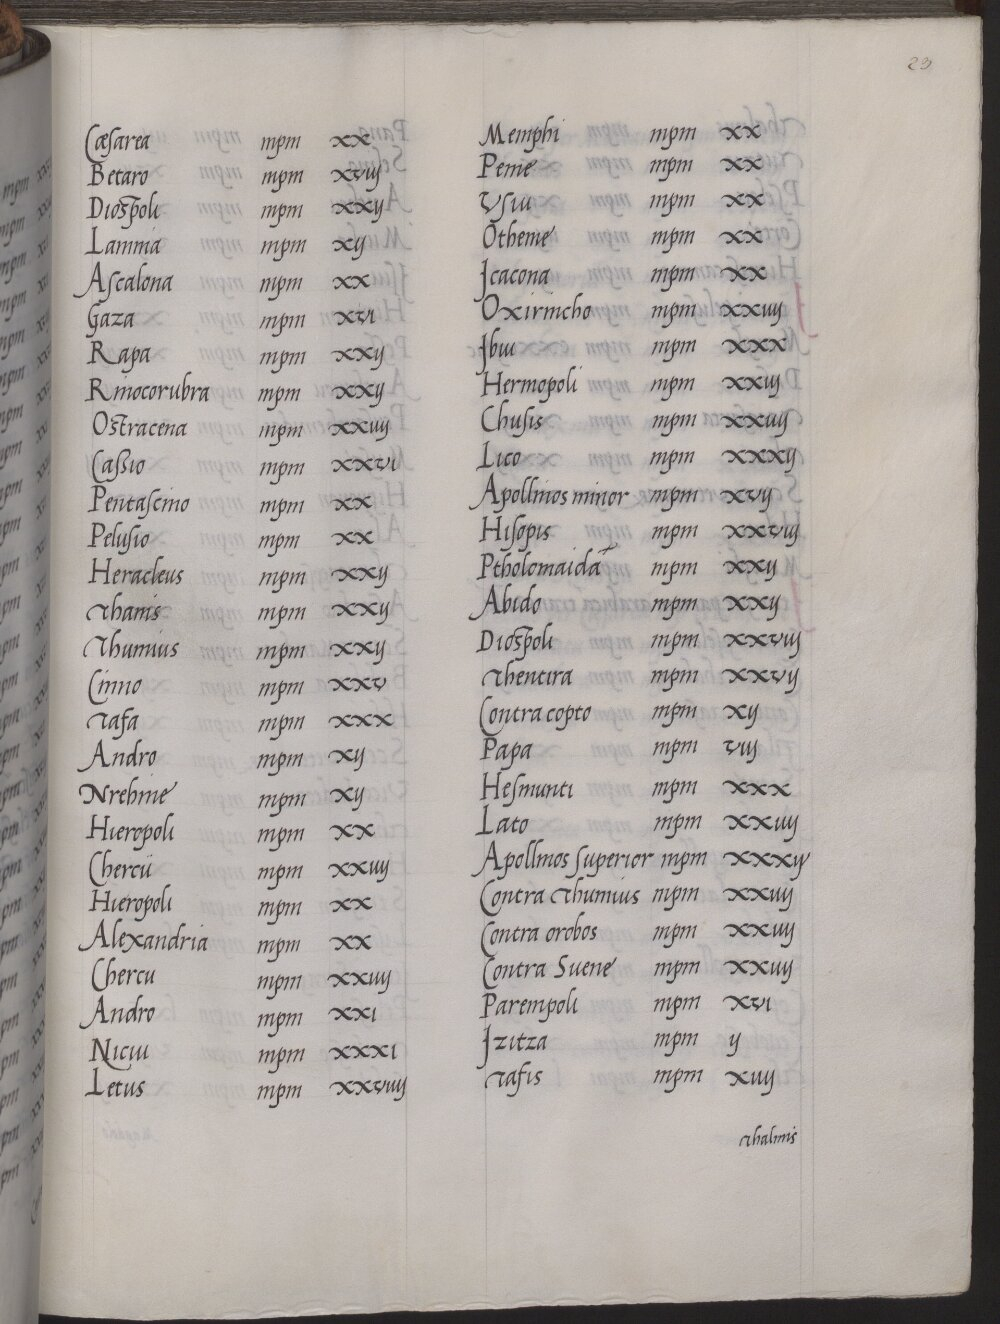 23
Cæsarea mpm xx
Betaro mpm xviij
Diospoli mpm xxij
Lamnia mpm xij
Ascalona mpm xx
Gaza mpm xvi
Rapa mpm xxij
Rinocorubra mpm xxij
Ostracena mpm xxiiij
Cassio mpm xxvi
Pentascino mpm xx
Pelusio mpm xx
Heracleus mpm xxij
Thanis mpm xxij
Thumius mpm xxij
Cinno mpm xxv
Tafa mpm xxx
Andro mpm xij
Nrehine mpm xij
Hieropoli mpm xx
Chercii mpm xxiiij
Hieropoli mpm xx
Alexandria mpm xx
Chercu mpm xxiiij
Andro mpm xxi
Niciu mpm xxxi
Letus mpm xxviiij
Memphi mpm xx
Peme mpm xx
Ysiu mpm xx
Otheme mpm xx
Icacona mpm xx
Oxirincho mpm xxiiij
Ibiu mpm xxx
Hermopoli mpm xxiiij
Chusis mpm xxiiij
Lico mpm xxxij
Apollinos minor mpm xvij
Hisopis mpm xxviij
Ptholomaida mpm xxij
Abido mpm xxij
Diospoli mpm xxviij
Thentira mpm xxvij
Contra copto mpm xij
Papa mpm viij
Hesmunti mpm xxx
Lato mpm xxiiij
Apollinos superior mpm xxxij
Contra Thumius mpm xxiiij
Contra orobos mpm xxiiij
Contra Suene mpm xxiiij
Parempoli mpm xvi
Izitza mpm ij
Tafis mpm xiiij
Thalmis